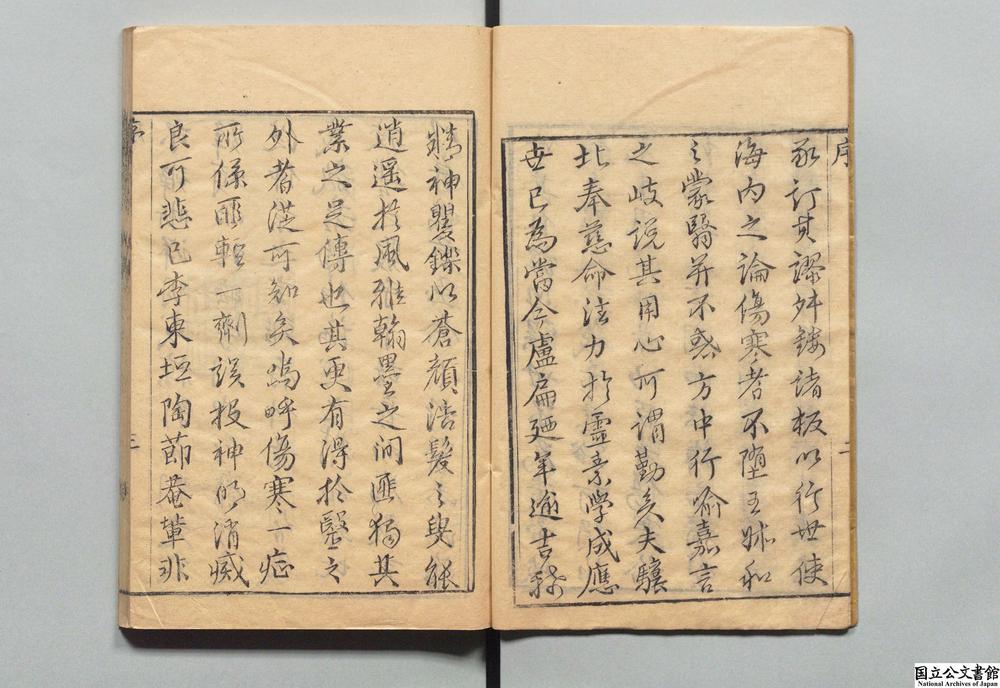 序
二
訂其謬舛鋟諸板以行世使
海内之論傷寒者不墮王叔和
之蒙醫并不惑方中行喻嘉言
之岐說其用心可謂勤矣夫驥
北奉慈命注力於靈素学成應
世已為當今盧扁廼年逾古稀
精神矍鑠以蒼顔浩髮之叟能
逍遥於風雅翰墨之间匪獨其
業之足傳也其更有得於醫之
外者從可知矣嗚呼傷寒一症
所係匪輕一劑誤投神明消滅
良可悲已李東垣陶節菴輩非
序
三
国立公文書館
National Archives of Japan